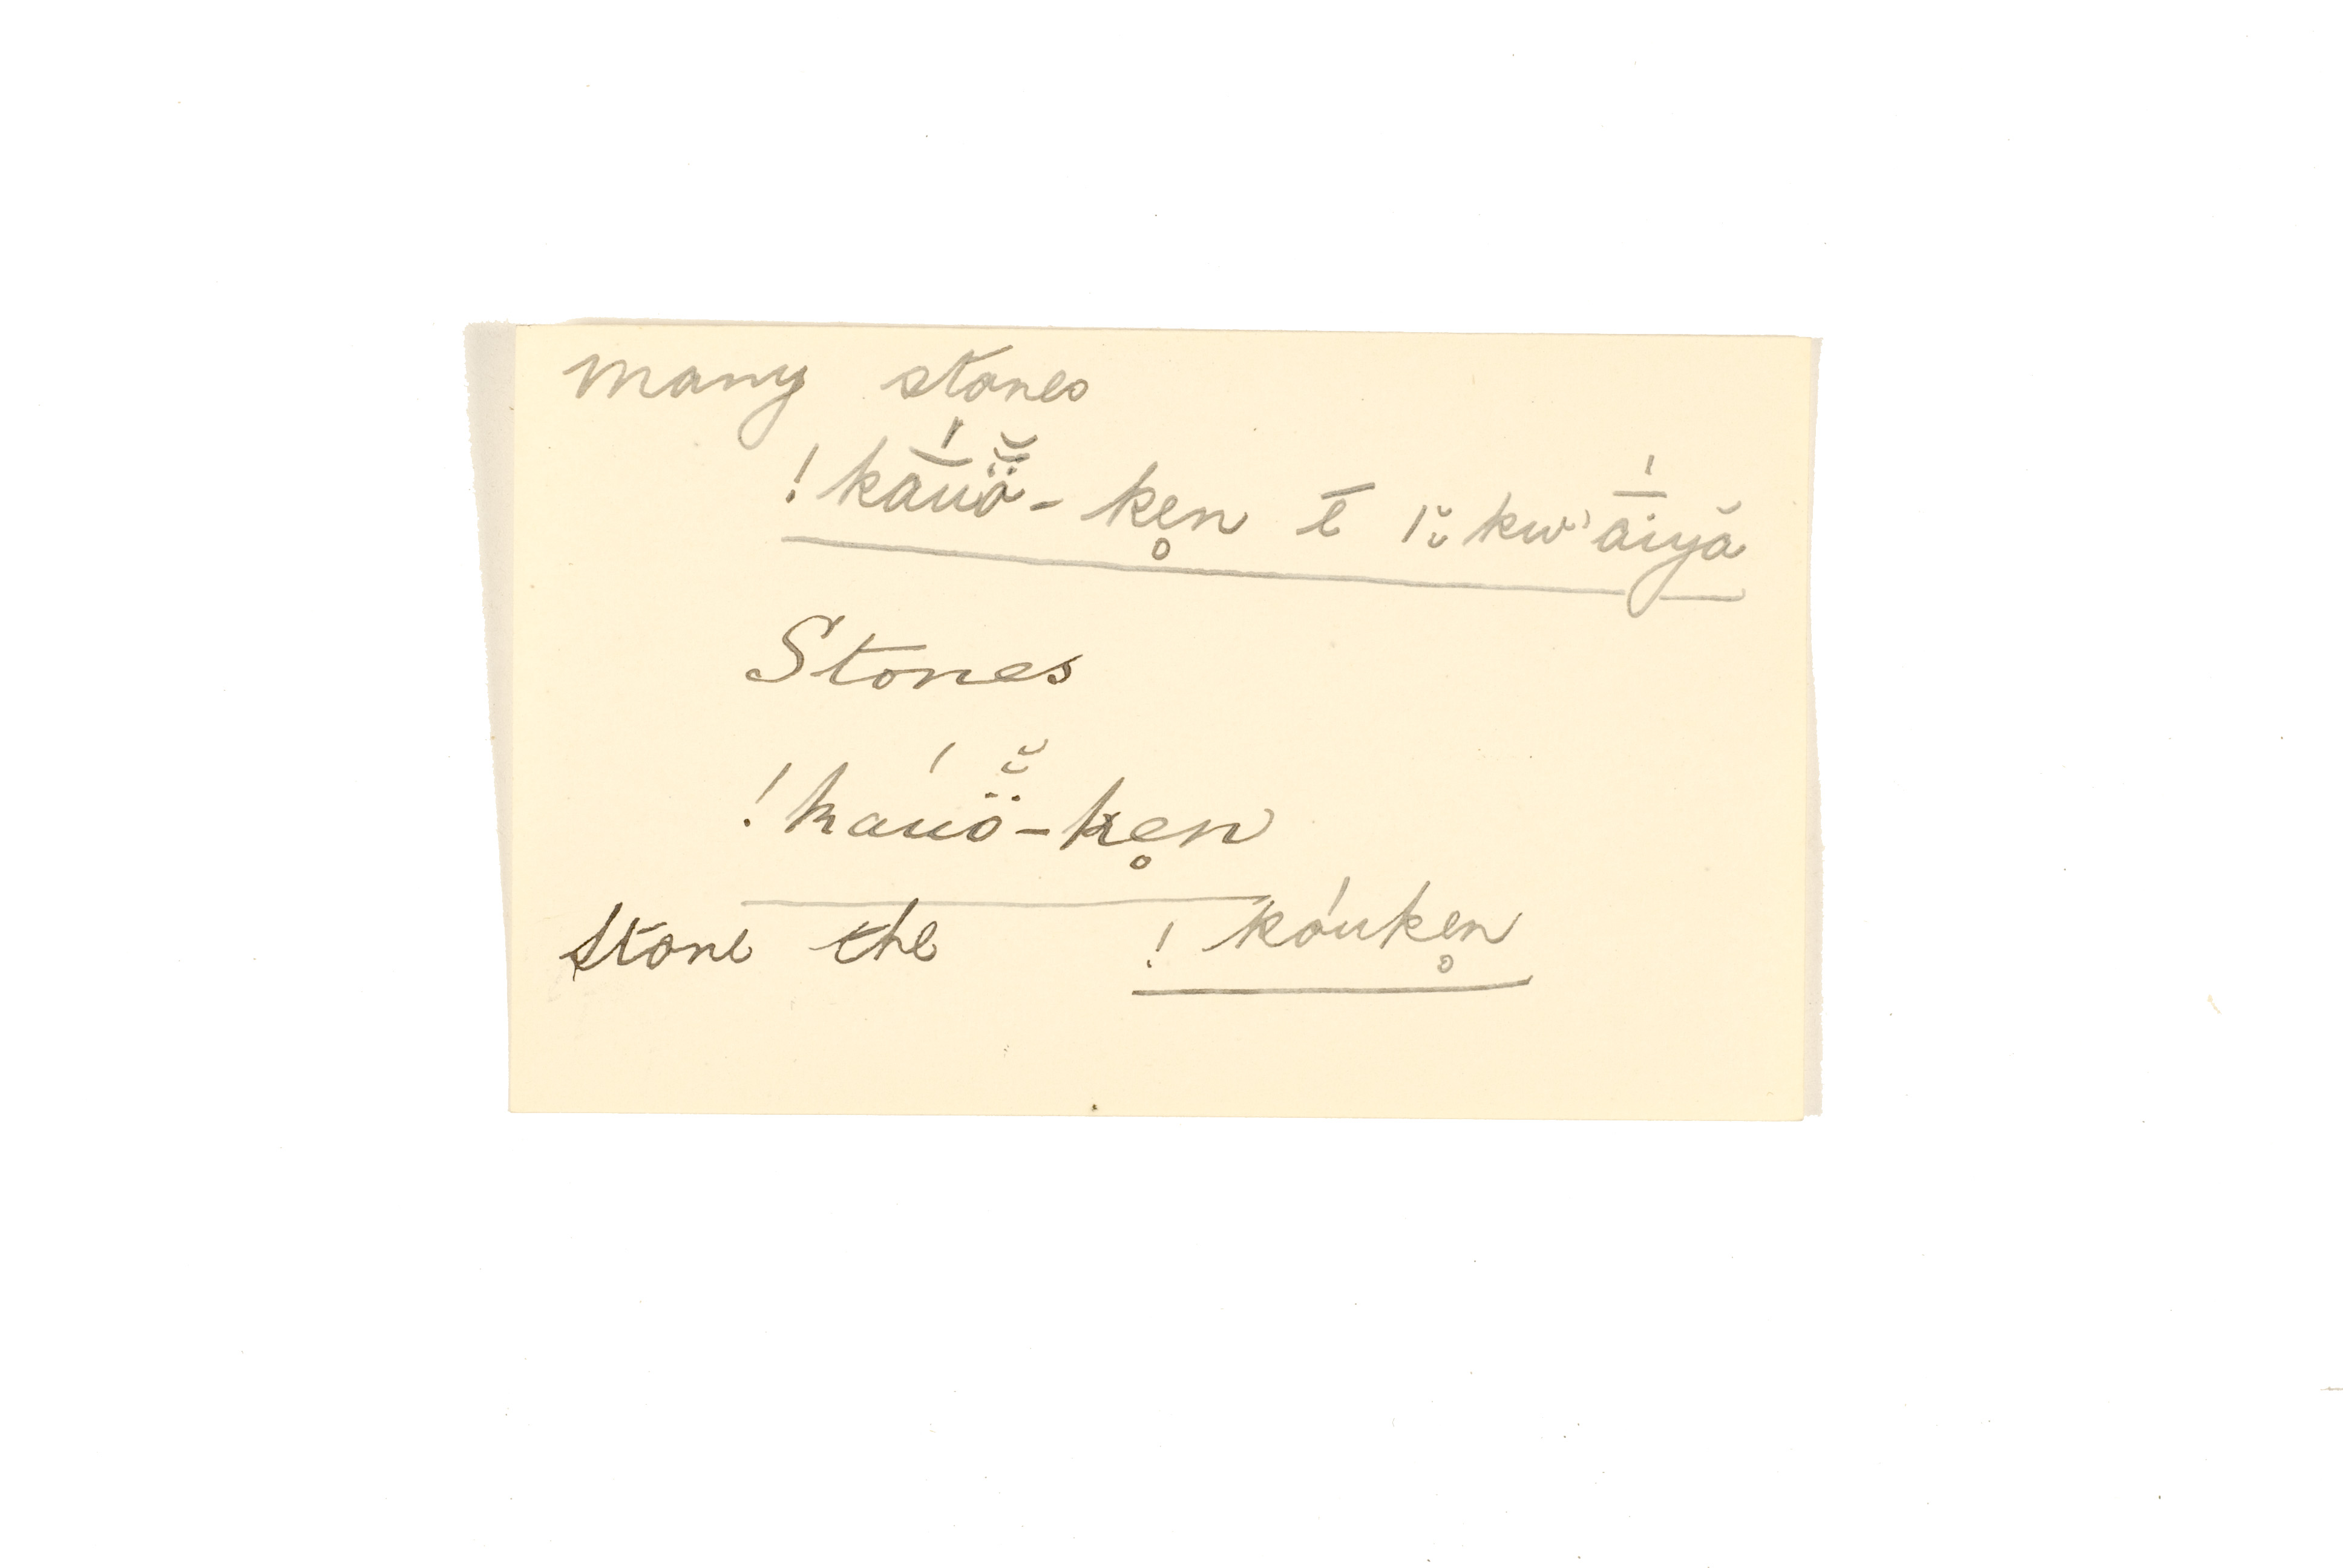 many stones
!kā́uö̆-ke̥n ē |ː̆kw'ā́iyă
Stones
!káuö̆-ke̥n
Stone the ! kóuke̥n